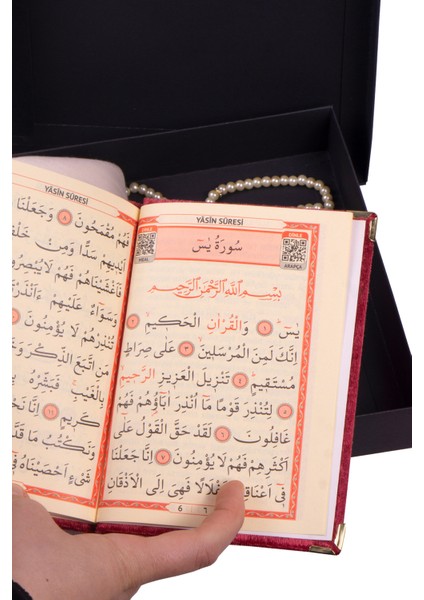 YÂSÎN SÛRESİ
DİNLE
MEAL
DİNLE
ARAPÇA
سُورَةُ يٰسٓ
بِسْمِ اللّٰهِ الرَّحْمٰنِ الرَّحِيمِ
يٰسٓ ﴿١﴾ وَالْقُرْاٰنِ الْحَكِيمِۙ ﴿٢﴾
اِنَّكَ لَمِنَ الْمُرْسَلِينَۙ ﴿٣﴾ عَلٰى صِرَاطٍ
مُسْتَقِيمٍ ﴿٤﴾ تَنْزِيلَ الْعَزِيزِ الرَّحِيمِۙ
﴿٥﴾ لِتُنْذِرَ قَوْمًا مَٓا اُنْذِرَ اٰبَٓاؤُ۬هُمْ فَهُمْ
غَافِلُونَ ﴿٦﴾ لَقَدْ حَقَّ الْقَوْلُ عَلٰٓى
اَكْثَرِهِمْ فَهُمْ لَا يُؤْمِنُونَ ﴿٧﴾ اِنَّا جَعَلْنَا
فِٓي اَعْنَاقِ غْلَالًا فَهِيَ اِلَى الْاَذْقَانِ
6 ٦
YÂSÎN SÛRESİ
فَهُمْ مُقْمَحُونَ ﴿٨﴾ وَجَعَلْنَا
اَيْدِيهِمْ سَدًّا وَمِنْ خَلْفِ
فَاَغْشَيْنَاهُمْ فَهُمْ لَا يُبْصِرُو
وَسَوَٓاءٌ عَلَيْهِمْ ءَاَنْذَرْ
تُنْذِرْهُمْ لَا يُؤْمِنُونَ
مَنِ اتَّبَعَ الذِّكْرَ وَ
بِالْغَيْبِۚ فَبَشِّرْهُ
كَرِيمٍ ﴿١١﴾ اِنَّا نَحْ
وَنَكْتُبُ مَا قَدَّ
شَيْءٍ اَحْصَيْنَاهُ